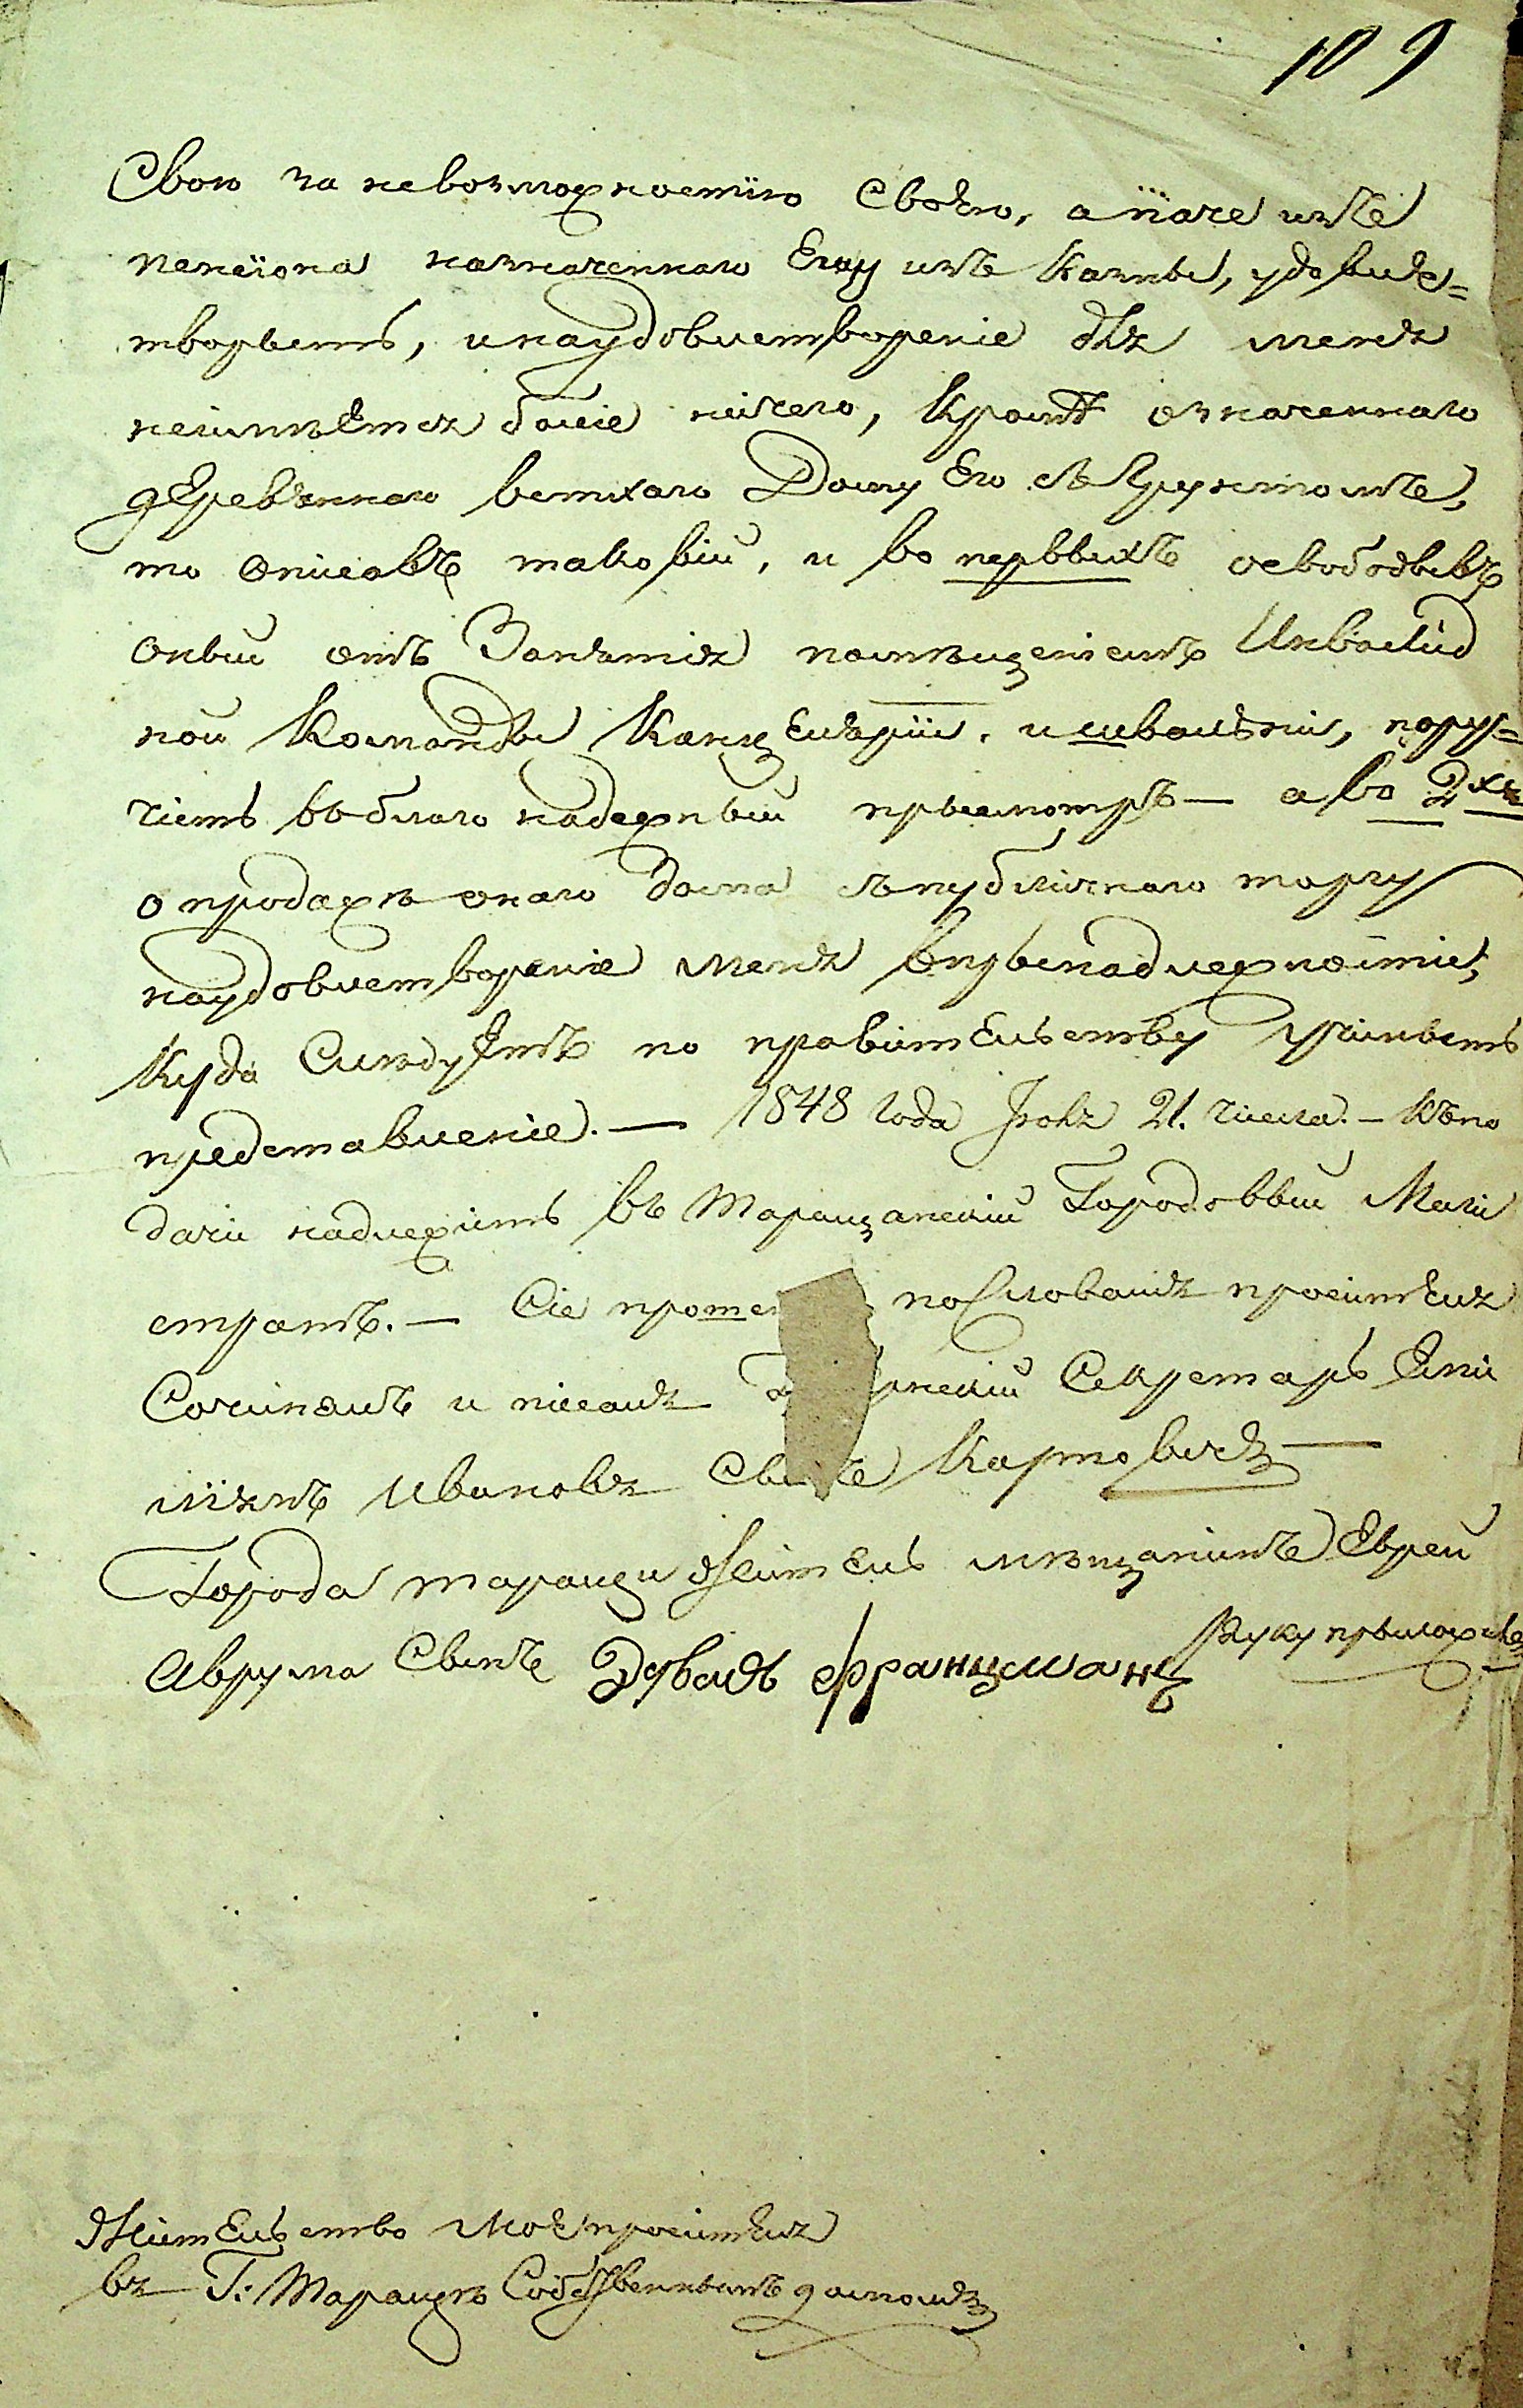 109
Свою за невозможностію своѣю, а паче изъ
пенсіона назначеннаго Ему изъ казны, удовле=
творыть, и наудовлетвореніе для меня
неимѣется болѣе нічего, Кромѣ означеннаго
дЕревяннаго ветхаго Дому Его съ Грунтомъ,
то описавъ таковій, и во первыхъ освободывъ
оный отъ Занятия помѣщеніемъ Инвалид
ной Команды КанцЕлярии, и швальни, пору=
чіть въ благо надежный прысмотръ — а во 2хъ
о продажѣ онаго дома съ публичнаго торгу
наудовлетвореніе меня впрынадлежности,
Куда СлѣдуЕтъ по правитЕльству учинить
представленіе. — 1848 года Іюля 21. числа. — Къ по
дачи надлежитъ въ Таращанскій Городовый Маги
стратъ. — Сіе проше по Словамъ проситЕля
Сочинялъ и писалъ рнскій СЕкретарь Еми
ліянъ Ивановъ Сынъ Карповичъ —
Города Таращи ЖитЕль мѣщанинъ Еврей
Аврума Сынъ Эдваль Францманъ Руку прыложилъ
ЖитЕльство моЕ просителя
въ Г: Таращѣ Собственнымъ домомъ